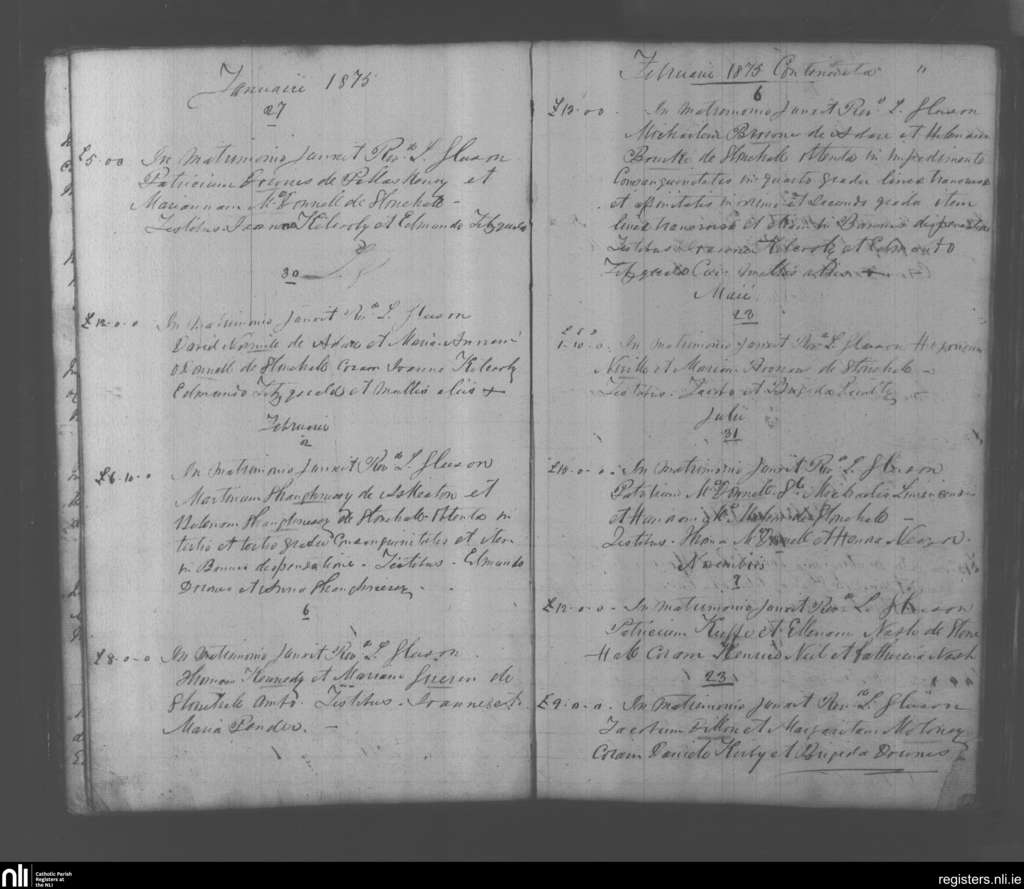 Januarii 1875
27
£5-00 In Matrimonio Junxit Revd. L. Gleeson
Patricium de Pallaskenry et
Mariannam McDonnell de Stonehall -
Testibus Joanne Kileroty et Edmundo Fitzgerald
30
£12-0-0 In Matrimonio Junxit Revd. L. Gleeson
David Neville de Adare et Maria
de Stonehall Coram Joanne Kileroty
Edmundo Fitzgerald et multis aliis +
Februarii
2
£6-10-0 In Matrimonio Junxit Revd. L. Gleeson
Martinum Shaughnessy de Askeaton et
Helenam Shaughnessy de Stonehall obtenta in
tertio et tertio gradu Consanguinitatis et item
in Bannis dispensatione. Testibus. Edmundo
et Anna Shaughnessy.
6
£8-0-0 In Matrimonio Junxit Revd. L. Gleeson.
Thomam Kennedy et Mariam Guerin de
Stonehall Ambo. Testibus. Joanne et
Maria Ponder. -
Februarii 1875 Continuata "
6
£12-00. In Matrimonio Junxit Revd. L. Gleeson
Michaelem Browne de Adare et Helenam
Bourke de Stonehall obtenta in impedimento
Consanguinitatis in quarto gradu linea transversa
et affinitatis in et secundo gradu item
linea transversa et etiam in Bannis dispensatione
Testibus Joanne Kileroty et Edmundo
Fitzgerald Cum multis aliis +
Maii
23
£ s d
1-10-0. In Matrimonio Junxit Revd. L. Gleeson
Neville et Mariam de Stonehall -
Testibus. Jacobo et Brigida
Julii
31
£10-0-0. In Matrimonio Junxit Revd. L. Gleeson
Patricium McDonnell St. Michaelis Limericensis
et Hannam de Stonehall -
Testibus. Thoma McDonnell et Hanna
Novembris
7
£12-0-0- In Matrimonio Junxit Revd. L. Gleeson
Patricium Keeffe et Ellenam Nash de Stone
Hall Coram Henrico Neil et Catherina Nash
23
£9-0-0. In Matrimonio Junxit Revd. L. Gleeson
Jacobum Dillon et Margaritam Moloney
Coram Daniele Kerby et Brigida Downes
nli
Catholic Parish
Registers at
the NLI
registers.nli.ie